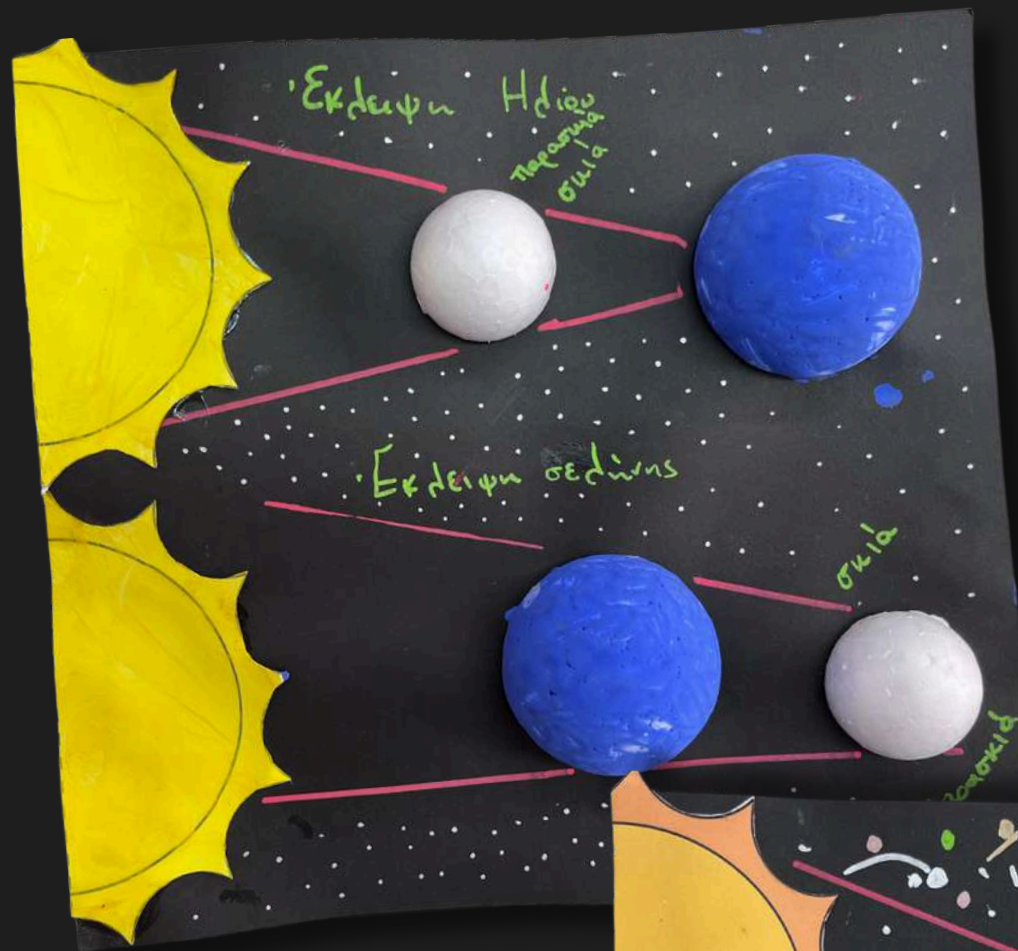 Έκλειψη Ηλίου
παρασκιά
σκιά
Έκλειψη σελήνης
σκιά